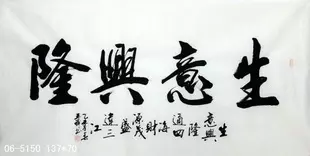 生意興隆
生意興隆通四海財源茂盛達三江
06-5150 137×70